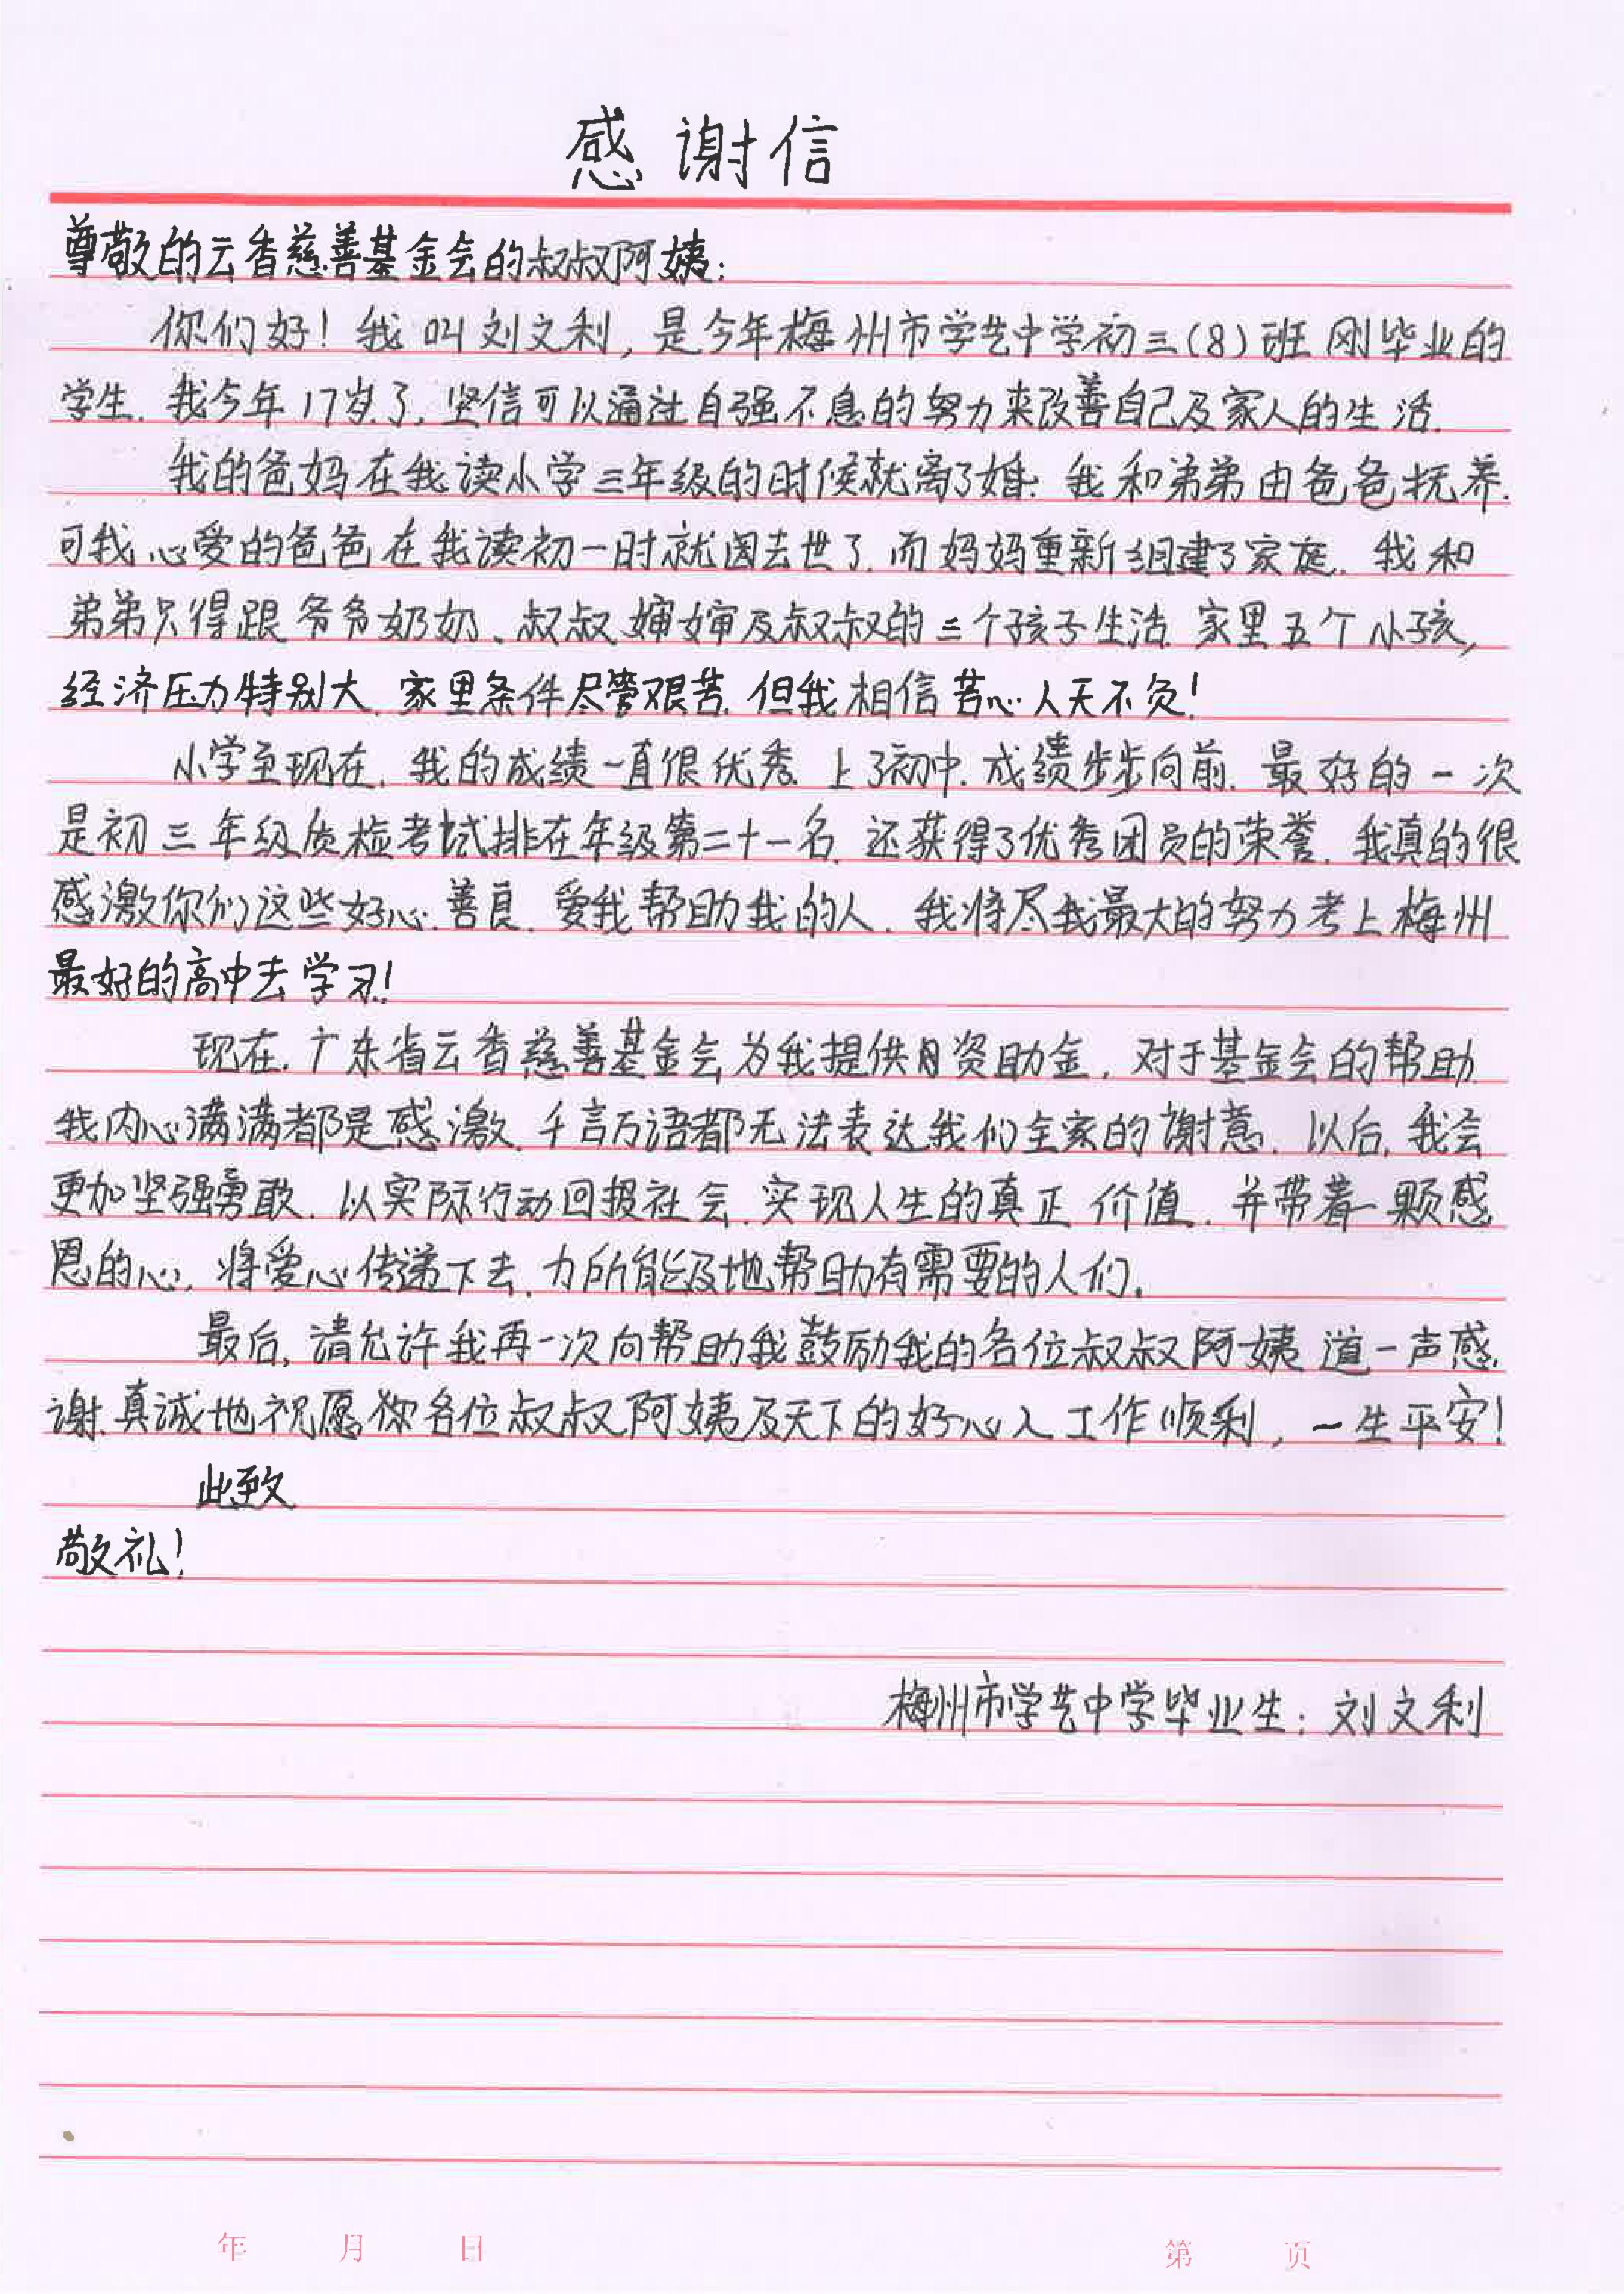 感谢信
尊敬的云香慈善基金会的叔叔阿姨：
你们好！我叫刘文利，是今年梅州市学艺中学初三(8)班刚毕业的
学生.我今年17岁了,坚信可以通过自强不息的努力来改善自己及家人的生活.
我的爸妈在我读小学三年级的时候就离了婚.我和弟弟由爸爸抚养.
可我心爱的爸爸在我读初一时就因去世了.而妈妈重新组建了家庭.我和
弟弟只得跟爷爷奶奶、叔叔婶婶及叔叔的三个孩子生活.家里五个小孩,
经济压力特别大.家里条件尽管艰苦.但我相信苦心人天不负！
小学至现在.我的成绩一直很优秀.上了初中.成绩步步向前.最好的一次
是初三年级质检考试排在年级第二十一名.还获得了优秀团员的荣誉.我真的很
感激你们这些好心.善良.爱我帮助我的人.我将尽我最大的努力考上梅州
最好的高中去学习！
现在.广东省云香慈善基金会为我提供月资助金,对于基金会的帮助
我内心满满都是感激.千言万语都无法表达我们全家的谢意.以后,我会
更加坚强勇敢.以实际行动回报社会.实现人生的真正价值.并带着一颗感
恩的心,将爱心传递下去.力所能及地帮助有需要的人们。
最后,请允许我再一次向帮助我鼓励我的各位叔叔阿姨道一声感
谢.真诚地祝愿你各位叔叔阿姨及天下的好心人工作顺利，一生平安！
此致
敬礼！
梅州市学艺中学毕业生：刘文利
年 月 日 第 页